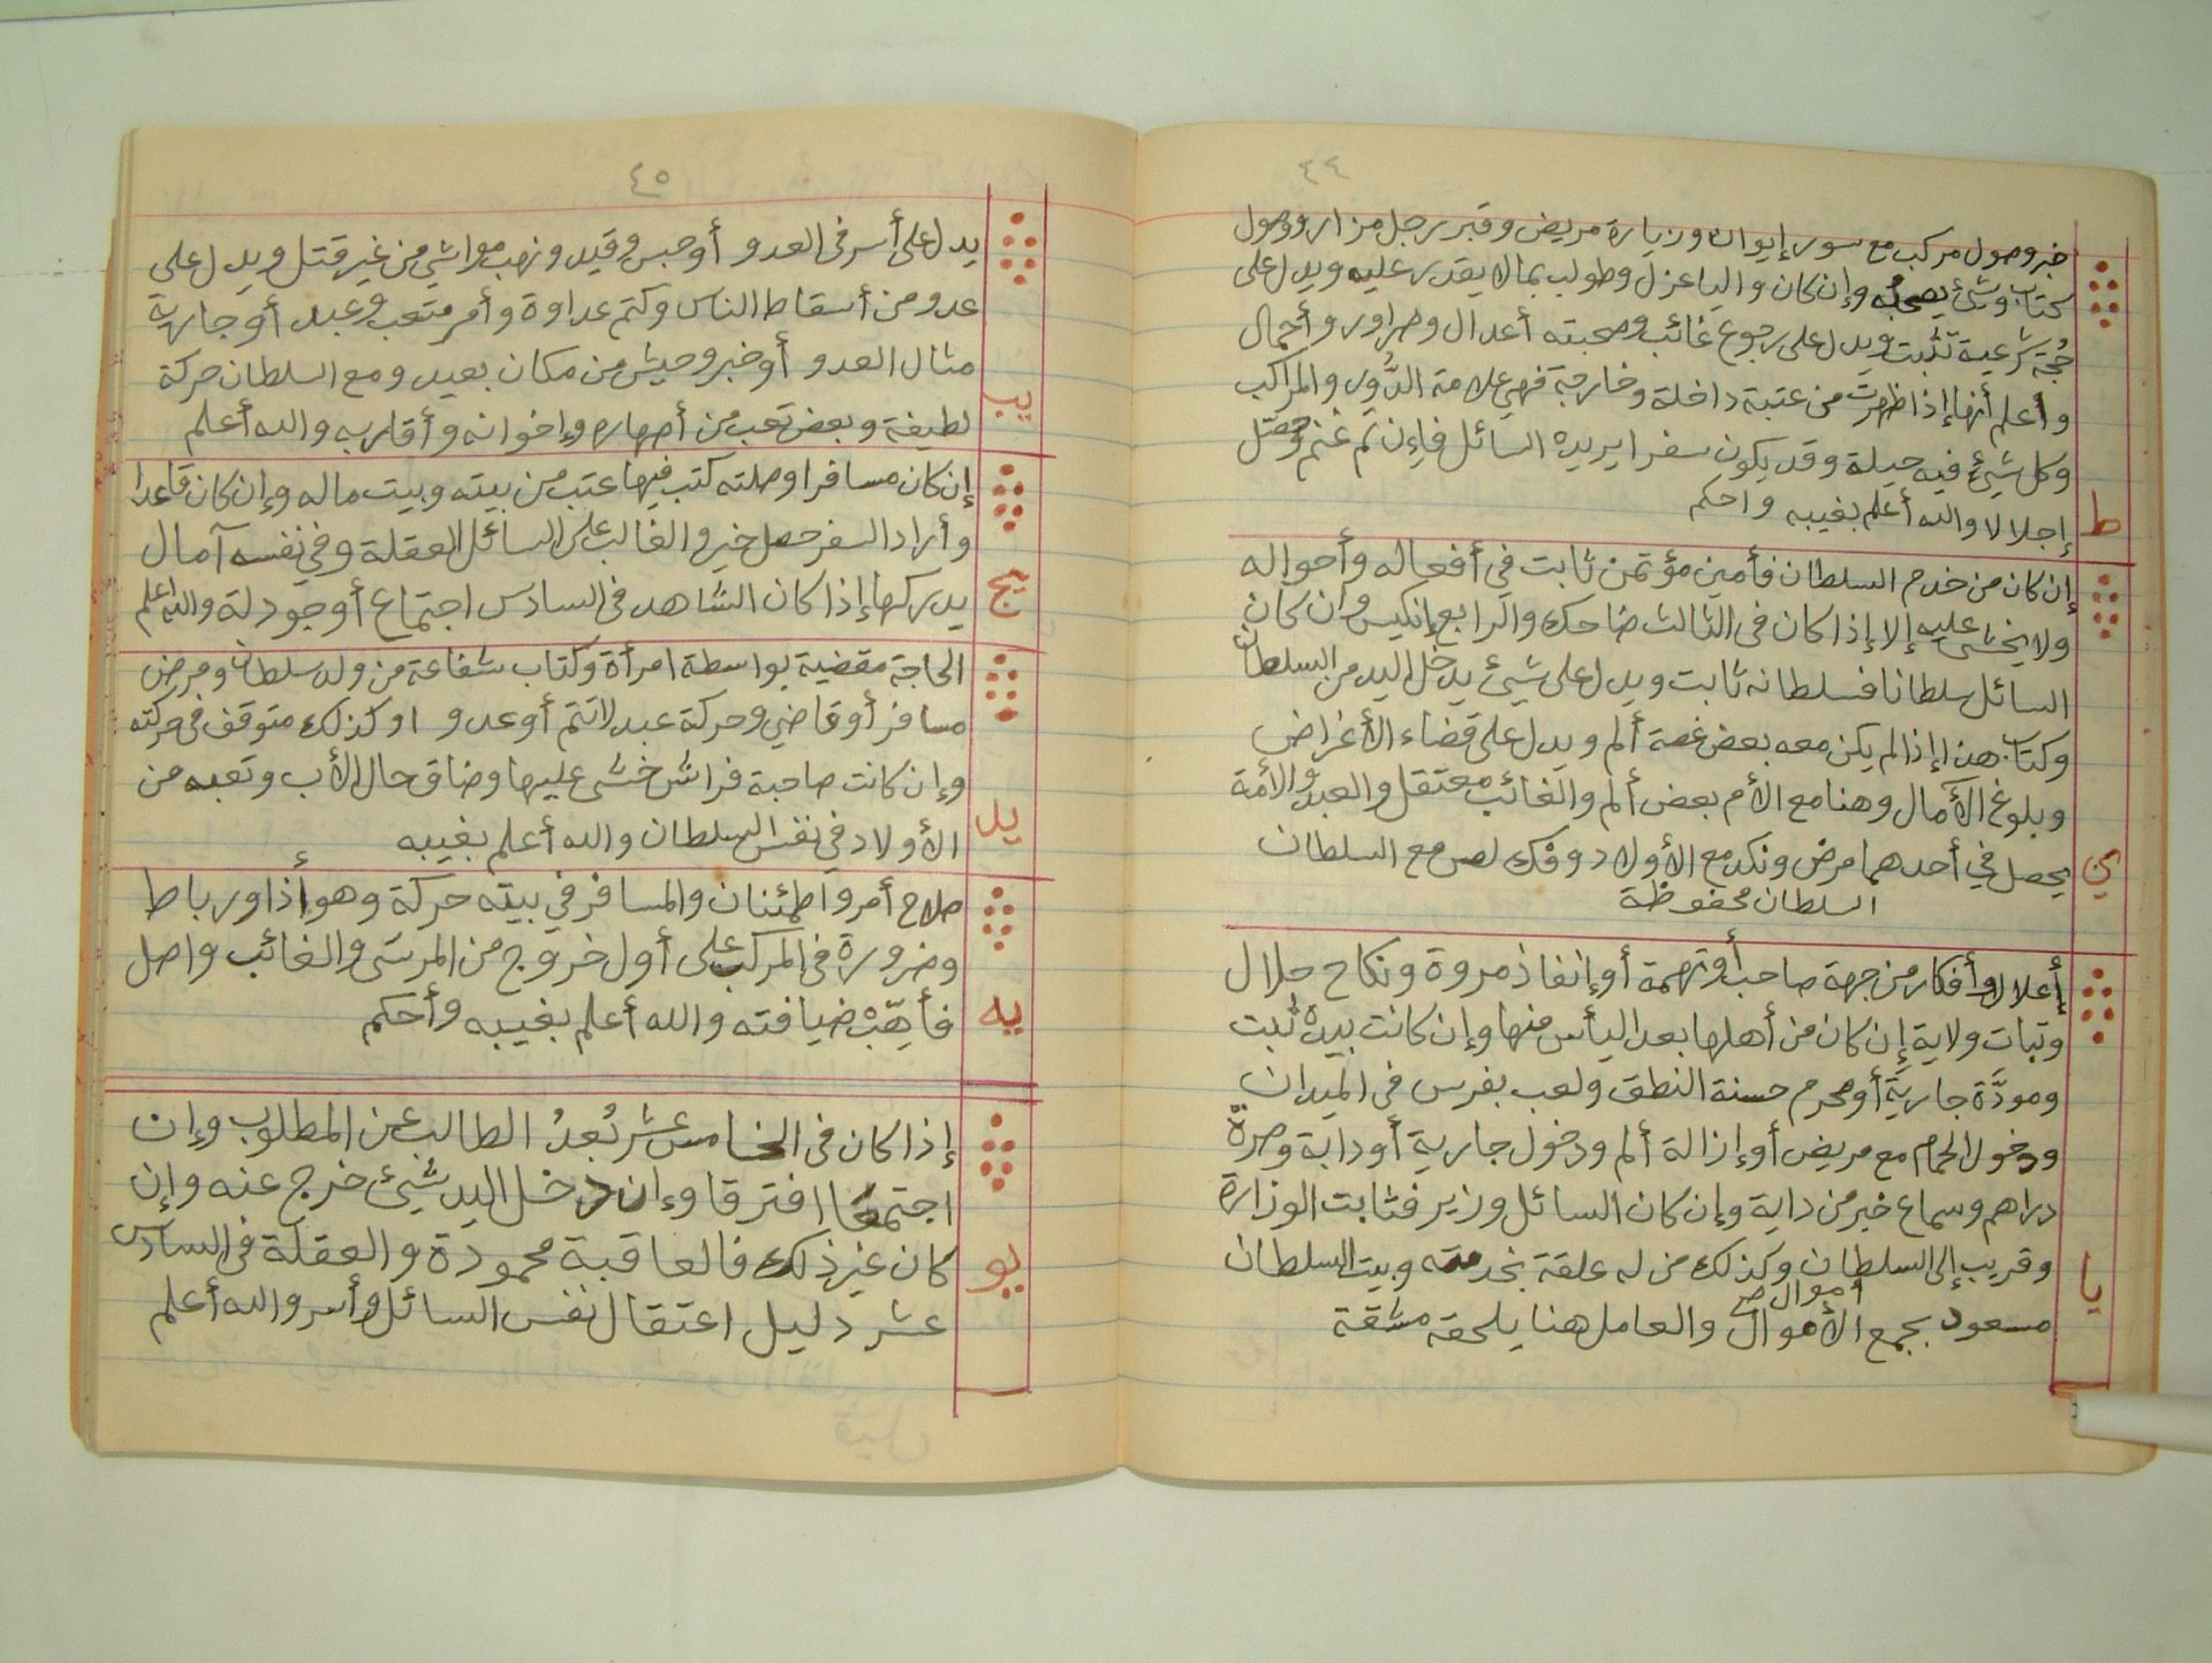 ٤٤
خبر وصول مركب مع سور إيوان وزيارة مريض وقبر رجل مزار ووصول
كتاب وشئ يصحبه وإن كان واليا عزل وطولب بمالا يقدر عليه ويدل على
حُجة شرعية تثبت ويدل على رجوع غائب وصحبته أعدال وصراور وأحمال
وأعلم أنها إذا ظهرت من عتبة داخلة وخارجة فهي علامة الدُّور والمراكب
وكل شيئ فيه حيلة وقد يكون سفرا يريده السائل فإن تم غنم وحصّل
ط
إجلالا والله أعلم بغيبه واحكم
إن كان من خدم السلطان فأمين مؤتمن ثابت في أفعاله وأحواله
ولا يخشى عليه إلا إذا كان فى الثالث ضاحك والرابع إنكيس وان كان
السائل سلطانا فسلطانه ثابت ويدل على شيئ يدخل اليد من السلطان
وكتاب هذا إذا لم يكن معه بعض غصة ألم ويدل على قضاء الأغراض
وبلوغ الآمال وهنا مع الأم بعض ألم والغائب معتقل والعبد والأمة
ي
يحصل في أحدهما مرض ونكد مع الأولاد وفك لص مع السلطان
السلطان محفوظة
إعلال وأفكار من جهة صاحب أوتهمة أو إنفاذ مروة ونكاح حلال
وتبات ولاية إن كان من أهلها بعد اليأس منها وإن كانت بيده ثبت
ومودَّة جارية أومحرم حسنة النطق ولعب بفرس فى الميدان
ودخول الحمام مع مريض أو إزالة ألم ودخول جارية أودابة وصرة
دراهم وسماع خبر من داية وإن كان السائل وزير فثابت الوزارة
وقريب إلى السلطان وكذلك من له علقة بخدمته وبيت السلطان
يا
أموال صح
مسعود بجمع الأموال والعامل هنا يلحقه مشقة
٤٥
يدل على أسر فى العدو أو حبس وقيد ونهب مواشي من غير قتل ويدل على
عدو من أسقاط الناس وكتم عداوة وأمر متعب وعبد أو جارية
مثال العدو أو خبر وحيش من مكان بعيد ومع السلطان حركة
يب
لطيفة وبعض تعب من أصهاره وإخوانه وأقاربه والله أعلم
إن كان مسافرا وصلته كتب فيها عتب من بيته وبيت ماله وإن كان قاعدا
وأراد السفر حصل خير والغالب على السائل العقلة وفي نفسه آمال
يج
يدركها إذا كان الشاهد فى السادس اجتماع أوجودلة والله اعلم
الحاجة مقضية بواسطة امرأة وكتاب شفاعة من ولد سلطان ومرض
مسافر أو قاضي وحركة عبد لاتتم أوعدو اوكذلك متوقف فى حركته
وإن كانت صاحبة فراش خشى عليها وضاق حال الأب وتعبه من
يد
الأولاد في نفس السلطان والله أعلم بغيبه
صلاح أمر واطمئنان والمسافر في بيته حركة وهو أذا ورباط
وضرورة فى المركب على أول خروج من المرسى والغائب واصل
يه
فأهِّبْ ضيافته والله أعلم بغيبه وأحكم
إذا كان فى الخامس عشر بُعدُ الطالب عن المطلوب وإن
اجتمعا افترقا وإن دخل اليد شيئ خرج عنه وإن
يو
كان غير ذلك فالعاقبة محمودة والعقلة فى السادس
عشر دليل اعتقال نفس السائل وأسر والله أعلم